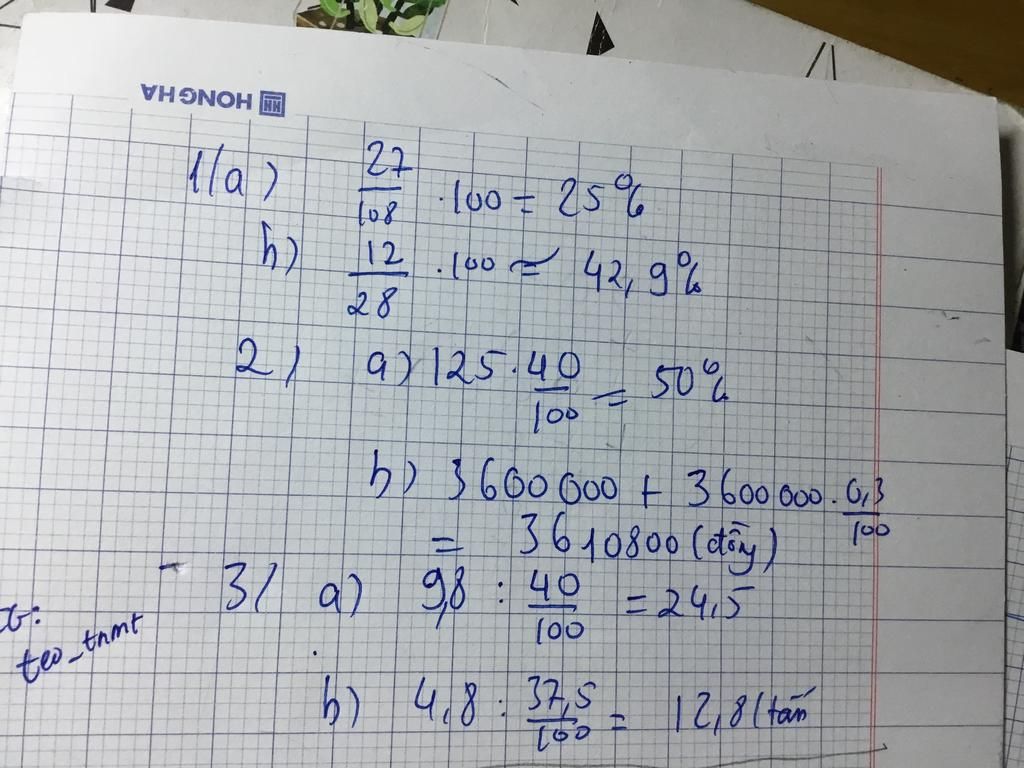 HONG HA
1/a) 27/108 . 100 = 25%
b) 12/28 . 100 ≃ 42,9%
2/ a) 125 . 40/100 = 50%
b) 3600 000 + 3600 000 . 0,3/100
= 3610800 (đồng)
3/ a) 9,8 : 40/100 = 24,5
b) 4,8 : 37,5/100 = 12,8 (tấn
teo_tnmt